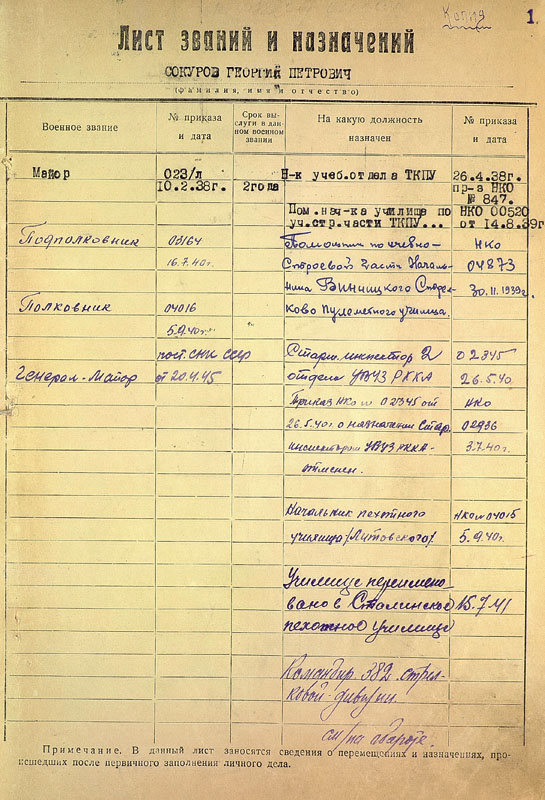 Копия
1.
Лист званий и назначений
СОКУРОВ ГЕОРГИЙ ПЕТРОВИЧ
(фамилия, имя и отчество)
Военное звание
№ приказа
и дата
Срок вы-
слуги в дан-
ном военном
звании
На какую должность
назначен
№ приказа
и дата
Майор
023/л
10.2.38г.
2года
Н-к учеб.отдела ТКПУ
26.4.38г.
пр-з НКО
№ 847.
Пом.нач-ка училища по
уч.стр.части ТКПУ...
НКО 00520
от 14.8.39г
Подполковник
03164
16.7.40г.
Помощник по учебно-
Строевой части Началь-
ника Винницкого Стрел-
ково Пулеметного училища.
НКО
04873
30.11.1939г.
Полковник
04016
5.9.40г.
Генерал-Майор
пост. СНК СССР
от 20.4.45
Старш. инспектор 2
отдела УВУЗ РККА
02345
26.5.40.
Приказ НКО № 02345 от
26.5.40г. о назначении Стар.
инспектором УВУЗ РККА-
отменен.
НКО
02936
3.7.40г.
Начальник пехотного
училища /Литовского/
НКО № 04015
5.9.40г.
Училище переимено-
вано в Сталинское
пехотное училище
15.7.41
Командир 382 стрел-
ковой дивизии.
см/на обороте.
Примечание. В данный лист заносятся сведения о перемещениях и назначениях, про-
исшедших после первичного заполнения личного дела.